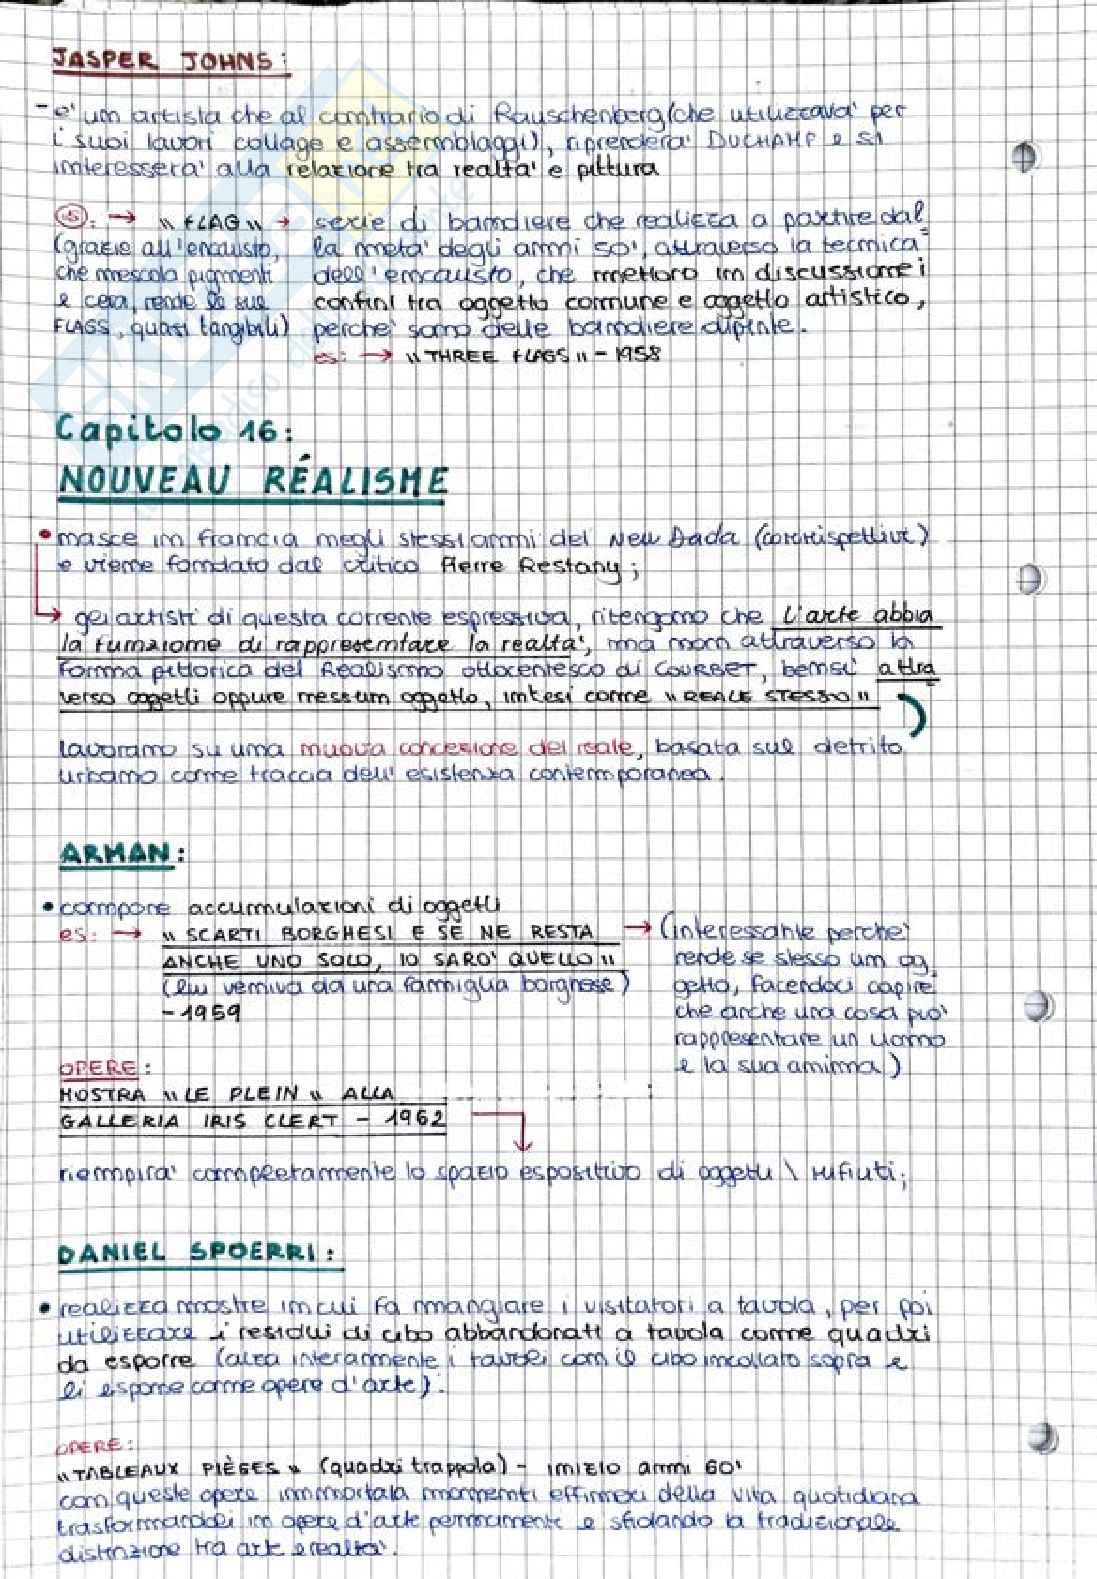 JASPER JOHNS:
- e' un artista che al contrario di Rauschenberg (che utilizzava' per
i suoi lavori collage e assemblaggi), riprendera' DUCHAMP e si
interessera' alla relazione tra realta' e pittura
es: → "FLAG" → serie di bandiere che realizza a partire dal
(grazie all'encausto, la meta' degli anni 50', attraverso la tecnica
che mescola pigmenti dell'encausto, che mettono in discussione i
e cera, rende le sue confini tra oggetto comune e oggetto artistico,
FLAGS, quasi tangibili) perche' sono delle bandiere dipinte.
es: → "THREE FLAGS" - 1958
Capitolo 16:
NOUVEAU RÉALISME
• nasce in francia negli stessi anni del New Dada (corrispettivi)
e viene fondato dal critico Pierre Restany;
gli artisti di questa corrente espressiva, ritengono che l'arte abbia
la funzione di rappresentare la realta', ma non attraverso la
forma pittorica del Realismo ottocentesco di COURBET, bensi' attra
verso oggetti oppure nessun oggetto, intesi come "REALE STESSO"
lavorano su una nuova concezione del reale, basata sul detrito
urbano come traccia dell'esistenza contemporanea.
ARMAN:
• compone accumulazioni di oggetti
es: → "SCARTI BORGHESI E SE NE RESTA → (interessante perche'
ANCHE UNO SOLO, IO SARO' QUELLO" rende se stesso un og
(lui veniva da una famiglia borghese) getto, facendoci capire
- 1959 che anche una cosa puo'
rappresentare un uomo
e la sua anima)
OPERE:
MOSTRA "LE PLEIN" ALLA
GALLERIA IRIS CLERT - 1962
riempira' completamente lo spazio espositivo di oggetti \ rifiuti;
DANIEL SPOERRI:
• realizza mostre in cui fa mangiare i visitatori a tavola, per poi
utilizzare i residui di cibo abbandonati a tavola come quadri
da esporre (alza interamente i tavoli con il cibo incollato sopra e
li espone come opere d'arte).
OPERE:
"TABLEAUX PIÈGES" (quadri trappola) - inizio anni 60'
con queste opere immortala momenti effimeri della vita quotidiana
trasformandoli in opere d'arte permanente e sfidando la tradizionale
distinzione tra arte e realta'.